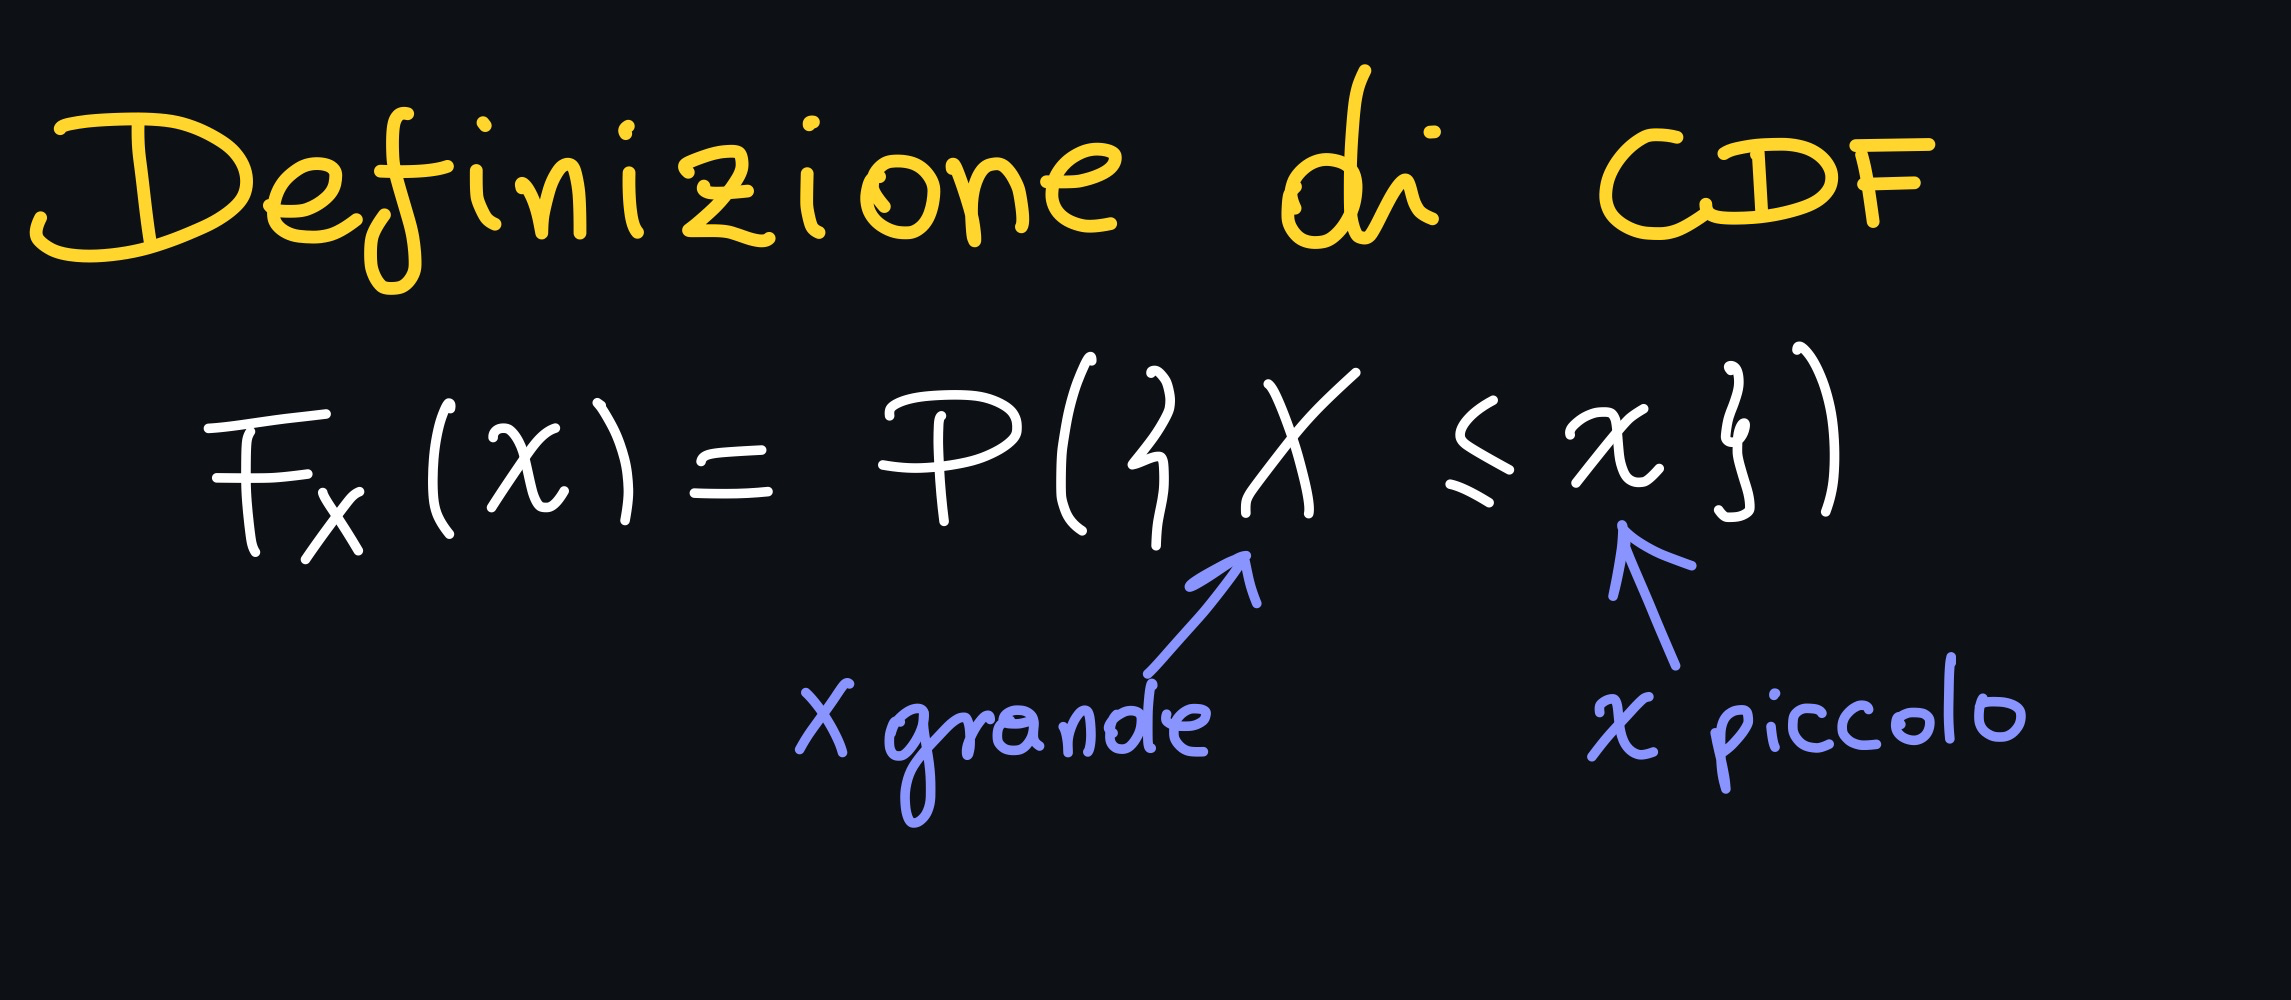 Definizione di CDF
F_X (x) = P({X ≤ x})
X grande x piccolo